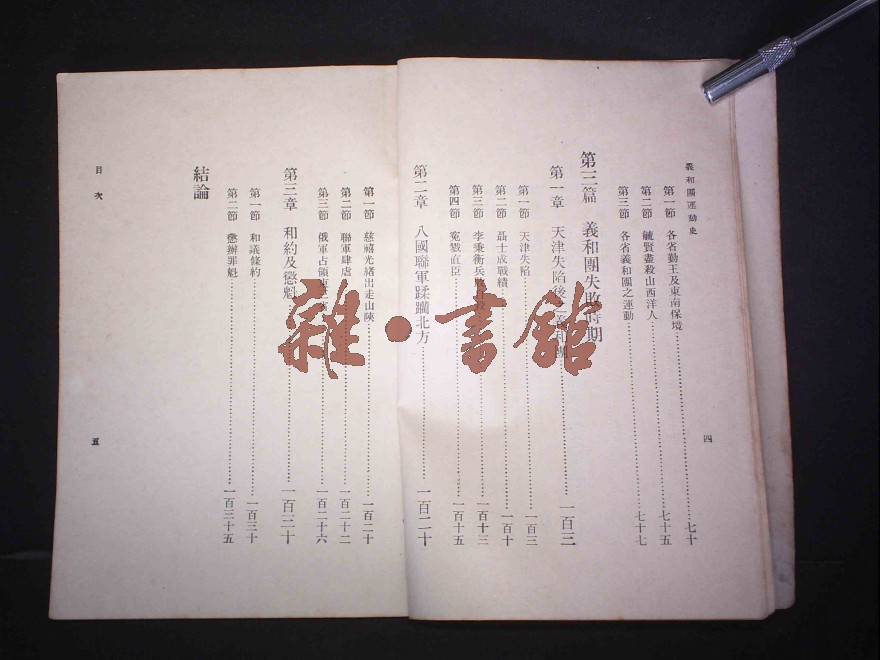 義和團運動史
第一節 各省勤王及東南保境 七十
第二節 毓賢盡殺山西洋人 七十五
第三節 各省義和團之運動 七十七
第三篇 義和團失敗時期
第一章 天津失陷後之義和團 一百三
第一節 天津失陷 一百三
第二節 聶士成戰績 一百十
第三節 李秉衡兵敗 一百十三
第四節 冤戮直臣 一百十五
第二章 八國聯軍蹂躪北方 一百二十
四
第一節 慈禧光緒出走山陝 一百二十
第二節 聯軍肆虐 一百二十二
第三節 俄軍占領東三省 一百二十六
第三章 和約及懲魁 一百三十
第一節 和議條約 一百三十
第二節 懲辦罪魁 一百三十五
結論
目次
五
雜·書館